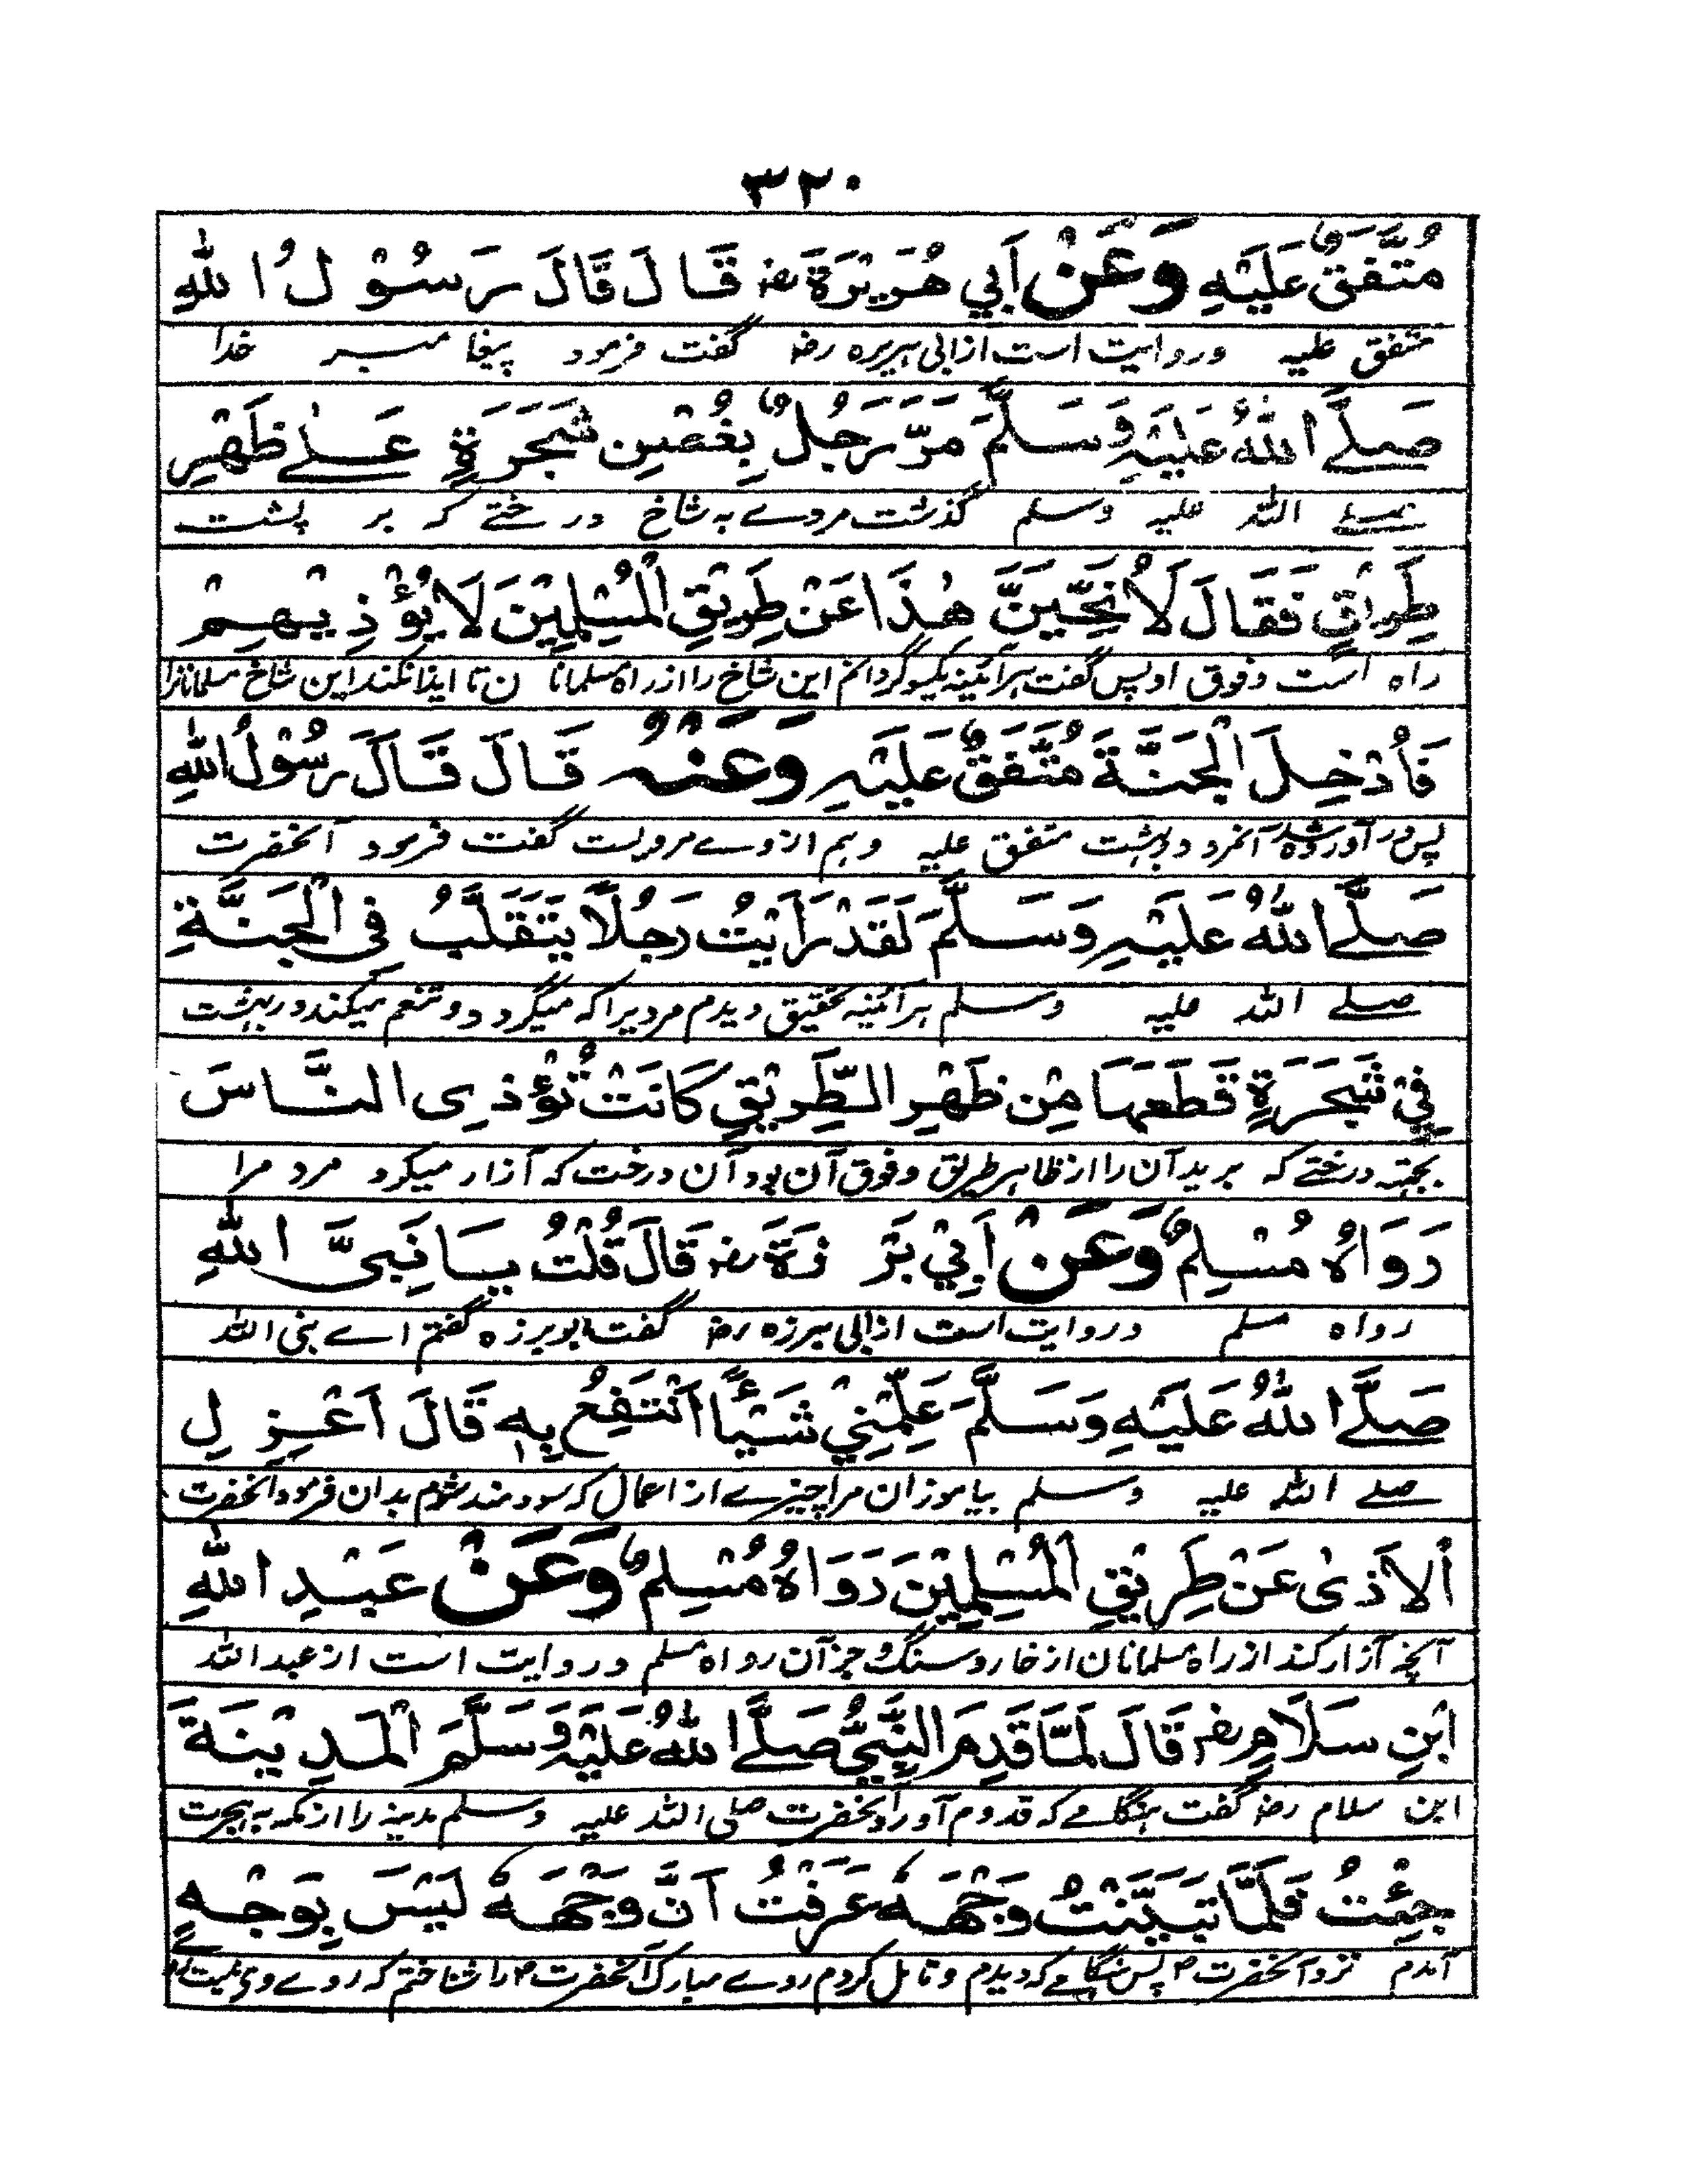 ٣٢٠
مُتَّفَقٌ عَلَيْهِ وَعَنْ أَبِي هُرَيْرَةَ رض قَالَ قَالَ رَسُوْلُ اللهِ
متفق علیہ وروایت است از ابی ہریرہ رض گفت فرمود پیغامبر خدا
صَلَّے اللهُ عَلَيْهِ وَسَلَّمَ مَرَّ رَجُلٌ بِغُصْنِ شَجَرَةٍ عَلٰے ظَهْرِ
صلے اللہ علیہ وسلم گذشت مردے بہ شاخ درختے کہ بر پشت
طَرِيْقٍ فَقَالَ لَأُنَحِّيَنَّ هٰذَا عَنْ طَرِيْقِ الْمُسْلِمِيْنَ لَا يُؤْذِيْهِمْ
راہ است وفوق او پس گفت ہرآئینہ یکسو گردانم این شاخ را از راہ مسلمانان تا ایذا نکند این شاخ مسلمانانرا
فَأُدْخِلَ الْجَنَّةَ مُتَّفَقٌ عَلَيْهِ وَعَنْهُ قَالَ قَالَ رَسُوْلُ اللهِ
پس در آورده شد آنمرد در بهشت متفق علیہ وہم از وے مرویست گفت فرمود آنحضرت
صَلَّے اللهُ عَلَيْهِ وَسَلَّمَ لَقَدْ رَأَيْتُ رَجُلًا يَتَقَلَّبُ فِي الْجَنَّةِ
صلے اللہ علیہ وسلم ہرآئینہ تحقیق دیدم مردیرا کہ میگردد و تنعم میکند در بہشت
فِيْ شَجَرَةٍ قَطَعَهَا مِنْ ظَهْرِ الطَّرِيْقِ كَانَتْ تُؤْذِى النَّاسَ
بجہتہ درختے کہ برید آن را از ظاہر طریق وفوق آن بود آن درخت کہ آزار میکرد مردمرا
رَوَاهُ مُسْلِمٌ وَعَنْ أَبِيْ بَرْزَةَ رض قَالَ قُلْتُ يَا نَبِيَّ اللهِ
رواہ مسلم وروایت است از ابی برزہ رض گفت ابو برزہ گفتم اے نبی اللہ
صَلَّے اللهُ عَلَيْهِ وَسَلَّمَ عَلِّمْنِيْ شَيْأً أَنْتَفِعُ بِهٖ قَالَ اَعْزِلِ
صلے اللہ علیہ وسلم بیاموزان مرا چیزے از اعمال کہ سودمند شوم بدان فرمود آنحضرت
الْاَذٰى عَنْ طَرِيْقِ الْمُسْلِمِيْنَ رَوَاهُ مُسْلِمٌ وَعَنْ عَبْدِ اللهِ
آنچہ آزار کند از راہ مسلمانان از خار و سنگ و جز آن رواہ مسلم وروایت است از عبداللہ
ابْنِ سَلَامٍ رض قَالَ لَمَّا قَدِمَ النَّبِيُّ صَلَّے اللهُ عَلَيْهِ وَسَلَّمَ الْمَدِيْنَةَ
ابن سلام رض گفت ہنگامے کہ قدوم آورد آنحضرت صلی اللہ علیہ وسلم مدینہ را از مکہ بہ ہجرت
جِئْتُ فَلَمَّا تَبَيَّنْتُ وَجْهَهٗ عَرَفْتُ اَنَّ وَجْهَهٗ لَيْسَ بِوَجْهِ
آمدم نزد آنحضرت ص پس ہنگامے کہ دیدم و تامل کردم روے مبارک آنحضرت ص را شناختم کہ روے وی نیست